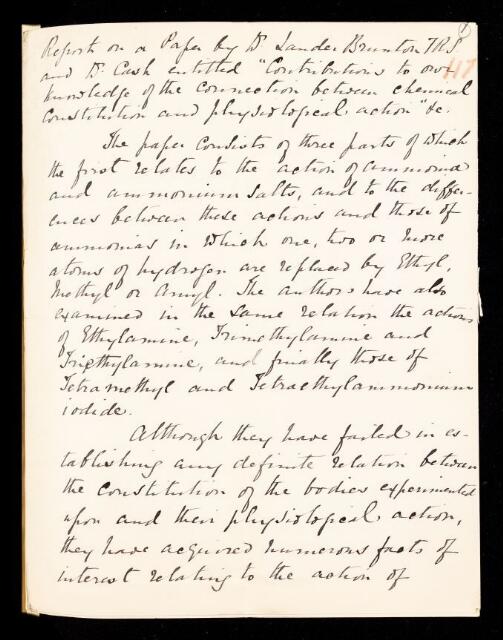 1
Report on a Paper by Dr Lauder Brunton FRS
117
and Dr Cash entitled "Contributions to our
knowledge of the connection between chemical
constitution and physiological action" &c.
The paper consists of three parts of which
the first relates to the action of ammonia
and ammonium salts, and to the differ-
ences between these actions and those of
ammonias in which one, two or more
atoms of hydrogen are replaced by Ethyl,
Methyl or Amyl. The authors have also
examined in the same relation the actions
of Ethylamine, Trimethylamine and
Triethylamine, and finally those of
Tetramethyl and Tetraethylammonium
iodide.
Although they have failed in es-
tablishing any definite relation between
the constitution of the bodies experimented
upon and their physiological action,
they have acquired numerous facts of
interest relating to the action of